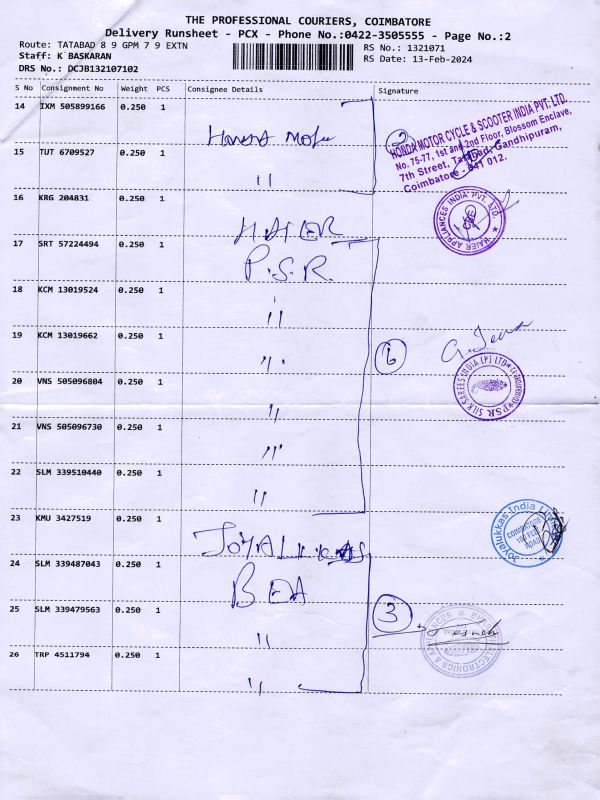 THE PROFESSIONAL COURIERS, COIMBATORE
Delivery Runsheet - PCX - Phone No.:0422-3505555 - Page No.:2
Route: TATABAD 8 9 GPM 7 9 EXTN
RS No.: 1321071
Staff: K BASKARAN
RS Date: 13-Feb-2024
DRS No.: DCJB132107102
S No Consignment No Weight PCS Consignee Details Signature
14 IXM 505899166 0.250 1
2
HONDA MOTOR CYCLE & SCOOTER INDIA PVT. LTD.
No. 75-77, 1st and 2nd Floor, Blossom Enclave,
7th Street, Tatabad, Gandhipuram,
Coimbatore - 641 012.
15 TUT 6709527 0.250 1
"
16 KRG 204831 0.250 1
HAIER
HAIER APPLIANCES INDIA PVT. LTD.
17 SRT 57224494 0.250 1
P.S.R.
18 KCM 13019524 0.250 1
"
19 KCM 13019662 0.250 1
"
6
PSR SILK SAREES INDIA (P) LTD
20 VNS 505096804 0.250 1
"
21 VNS 505096730 0.250 1
"
22 SLM 339510440 0.250 1
"
23 KMU 3427519 0.250 1
JOYALUKKAS
Joyalukkas India Ltd
COIMBATORE
100 FEET
ROAD
24 SLM 339487043 0.250 1
25 SLM 339479563 0.250 1
"
3
ELECTRONICS &
26 TRP 4511794 0.250 1
"